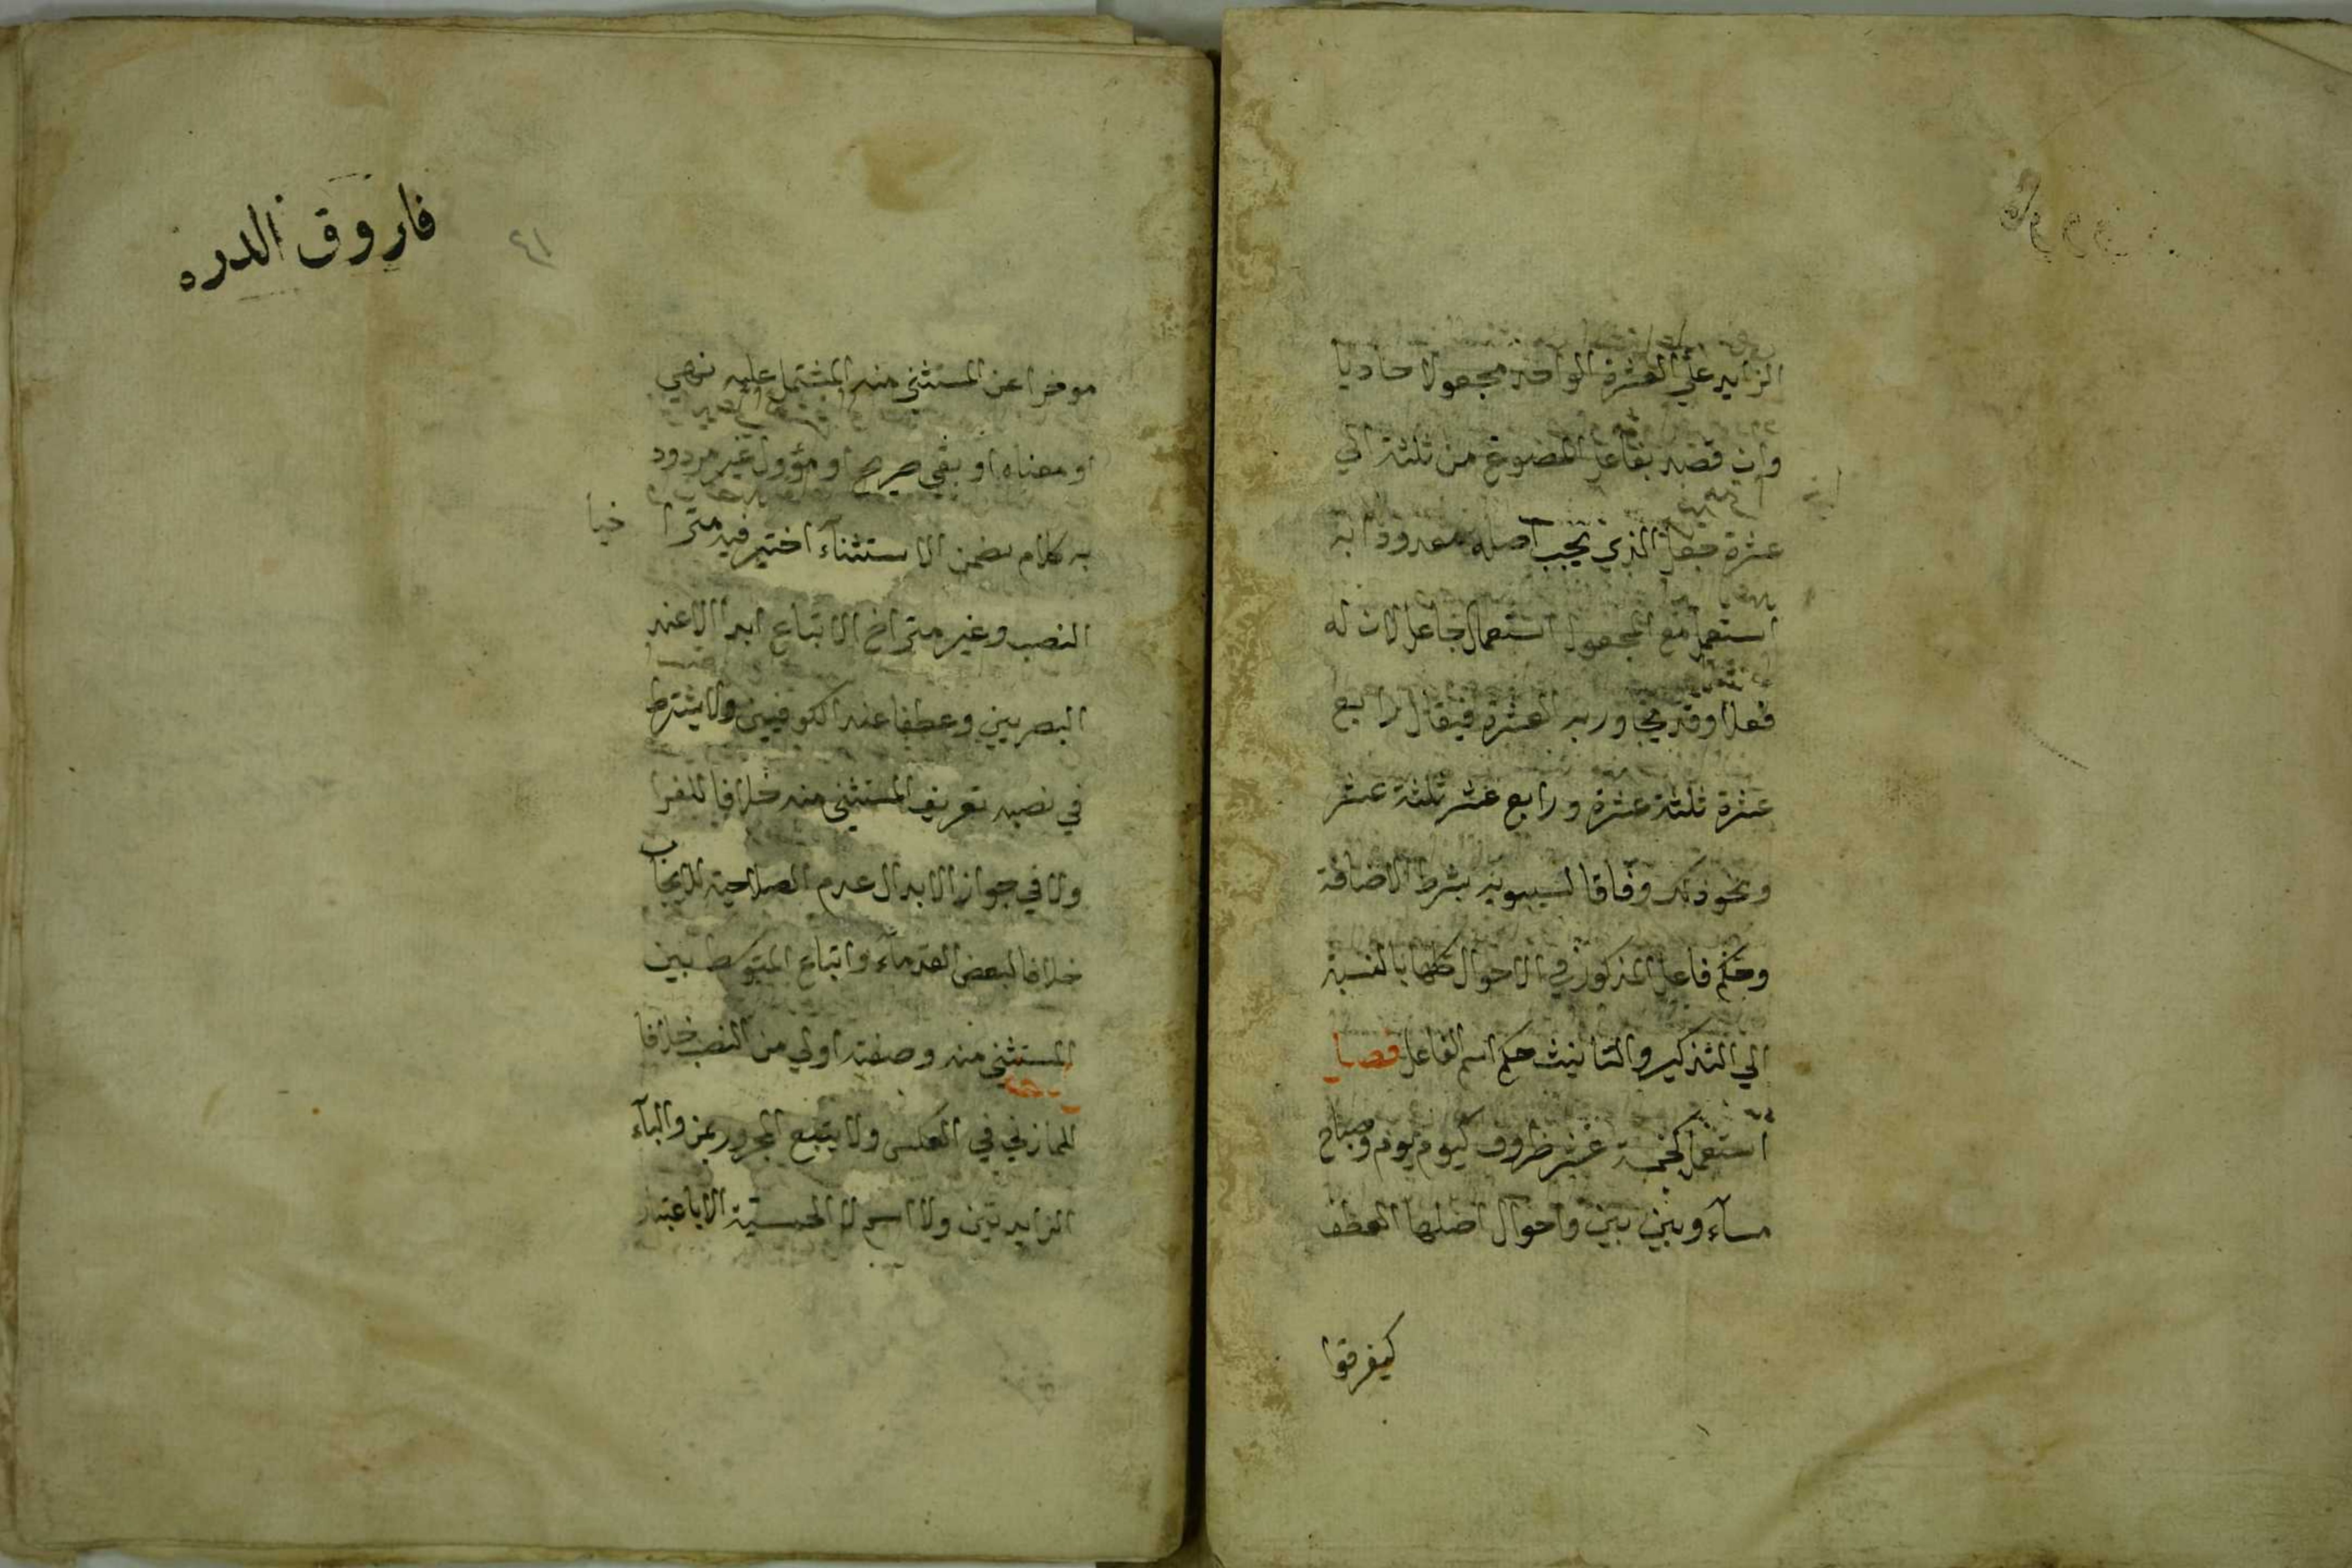 الزايد على العشرة الواحد مجعولا حاديا
وان قصد بفاعل المصوغ من ثلثة الي
عشرة جعل الذي تحجب اصله معدودا به
استعمل مع المجعول استعمال جاعل لان له
فعلا وقد يجاوز به العشرة فيقال رابع
عشرة ثلثة عشرة ورابع عشر ثلثة عشر
ونحو ذلك وفاقا لسيبويه بشرط الاضافة
وحكم فاعل المذكور في الاحوال كلها بالنسبة
الي التذكير والتانيث حكم اسم الفاعل فصل
استعمل كخمسة عشر ظروف كيوم يوم وصباح
مسآء وبين بين واحوال اصلها العطف
كيفرقوا
فاروق الدره
٤١
موخرا عن المستثني منه المشتمل عليه نهي
او معناه او نفي صريح او مؤول غير مردود
به كلام تضمن الاستثنآء اختير فيه متراخيا
النصب وغير متراخ الاتباع ابدالا عند
البصريين وعطفا عند الكوفيين ولا يشترط
في نصبه تعريف المستثني منه خلافا للفرا
ولا في جواز الابدال عدم الصلاحية للايجاب
خلافا لبعض القدمآء واتباع المتوسط بين
المستثني منه وصفته اولي من النصب خلافا
للمازني في العكس ولا يتبع المجرور بمن والبآء
الزايدتين ولا اسم لا الجنسية الا باعتبار